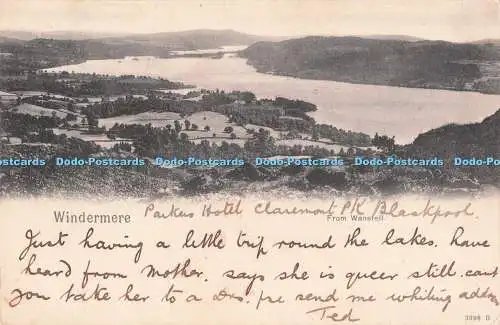 Dodo-Postcards Dodo-Postcards Dodo-Postcards Dodo-Postcards Dodo-Postcards
Windermere
From Wansfell.
Parkers Hotel Claremont PK Blackpool.
Just having a little trip round the lakes. have
heard from Mother. says she is queer still. cant
you take her to a Drs. pre send me whiting address
Ted
3298 D